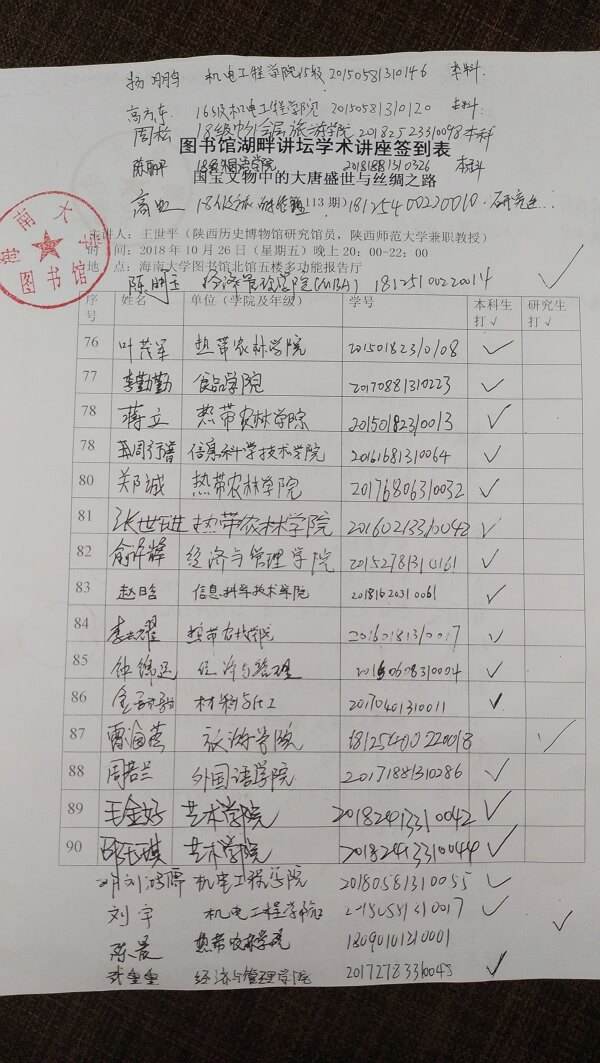 杨朋鸽 机电工程学院15级 20150581310146 本科.
高方东 16级机电工程学院 20150581310120 本科.
周松 18级中外合层旅游学院 20182523310098 本科
图书馆湖畔讲坛学术讲座签到表
陈丽丹 18级外国语学院 20181881310326 本科
国宝文物中的大唐盛世与丝绸之路
高虹 18级 113 期) 18125400220010. 研究生
主讲人：王世平（陕西历史博物馆研究馆员，陕西师范大学兼职教授）
时 间：2018 年 10 月 26 日（星期五）晚上 20：00-22：00
地 点：海南大学图书馆北馆五楼多功能报告厅
海南大学
图书馆
陈明玉 经济管理学院(MBA) 18125100220014 ✓
序号 姓名 单位（学院及年级） 学号 本科生打√ 研究生打√
76 叶茂军 热带农林学院 20150182310108 ✓
77 李勤勤 食品学院 20170881310223 ✓
78 蒋立 热带农林学院 20150182310013 ✓
78 周行谱 信息科学技术学院 20161681310064 ✓
80 郑诚 热带农林学院 20176806310032 ✓
81 张世进 热带农林学院 20160213310042 ✓
82 俞泽辉 经济与管理学院 20152781310161 ✓
83 赵日晗 信息科学技术学院 20181620310061 ✓
84 李 耀 热带农林学院 20160181310017 ✓
85 钟 经济与管理 20150608310004 ✓
86 金 材料与化工 20170401310011 ✓
87 雷海燕 旅游学院 18125400220018 ✓
88 周若兰 外国语学院 20171881310286 ✓
89 王金好 艺术学院 20182413310042 ✓
90 邱玉琪 艺术学院 20182413310044 ✓
刘鸿儒 机电工程学院 20180581310055 ✓
刘宇 机电工程学院 20150581310017 ✓
陈晨 热带农林学院 18090101210001 ✓
经济与管理学院 20172783310045 ✓